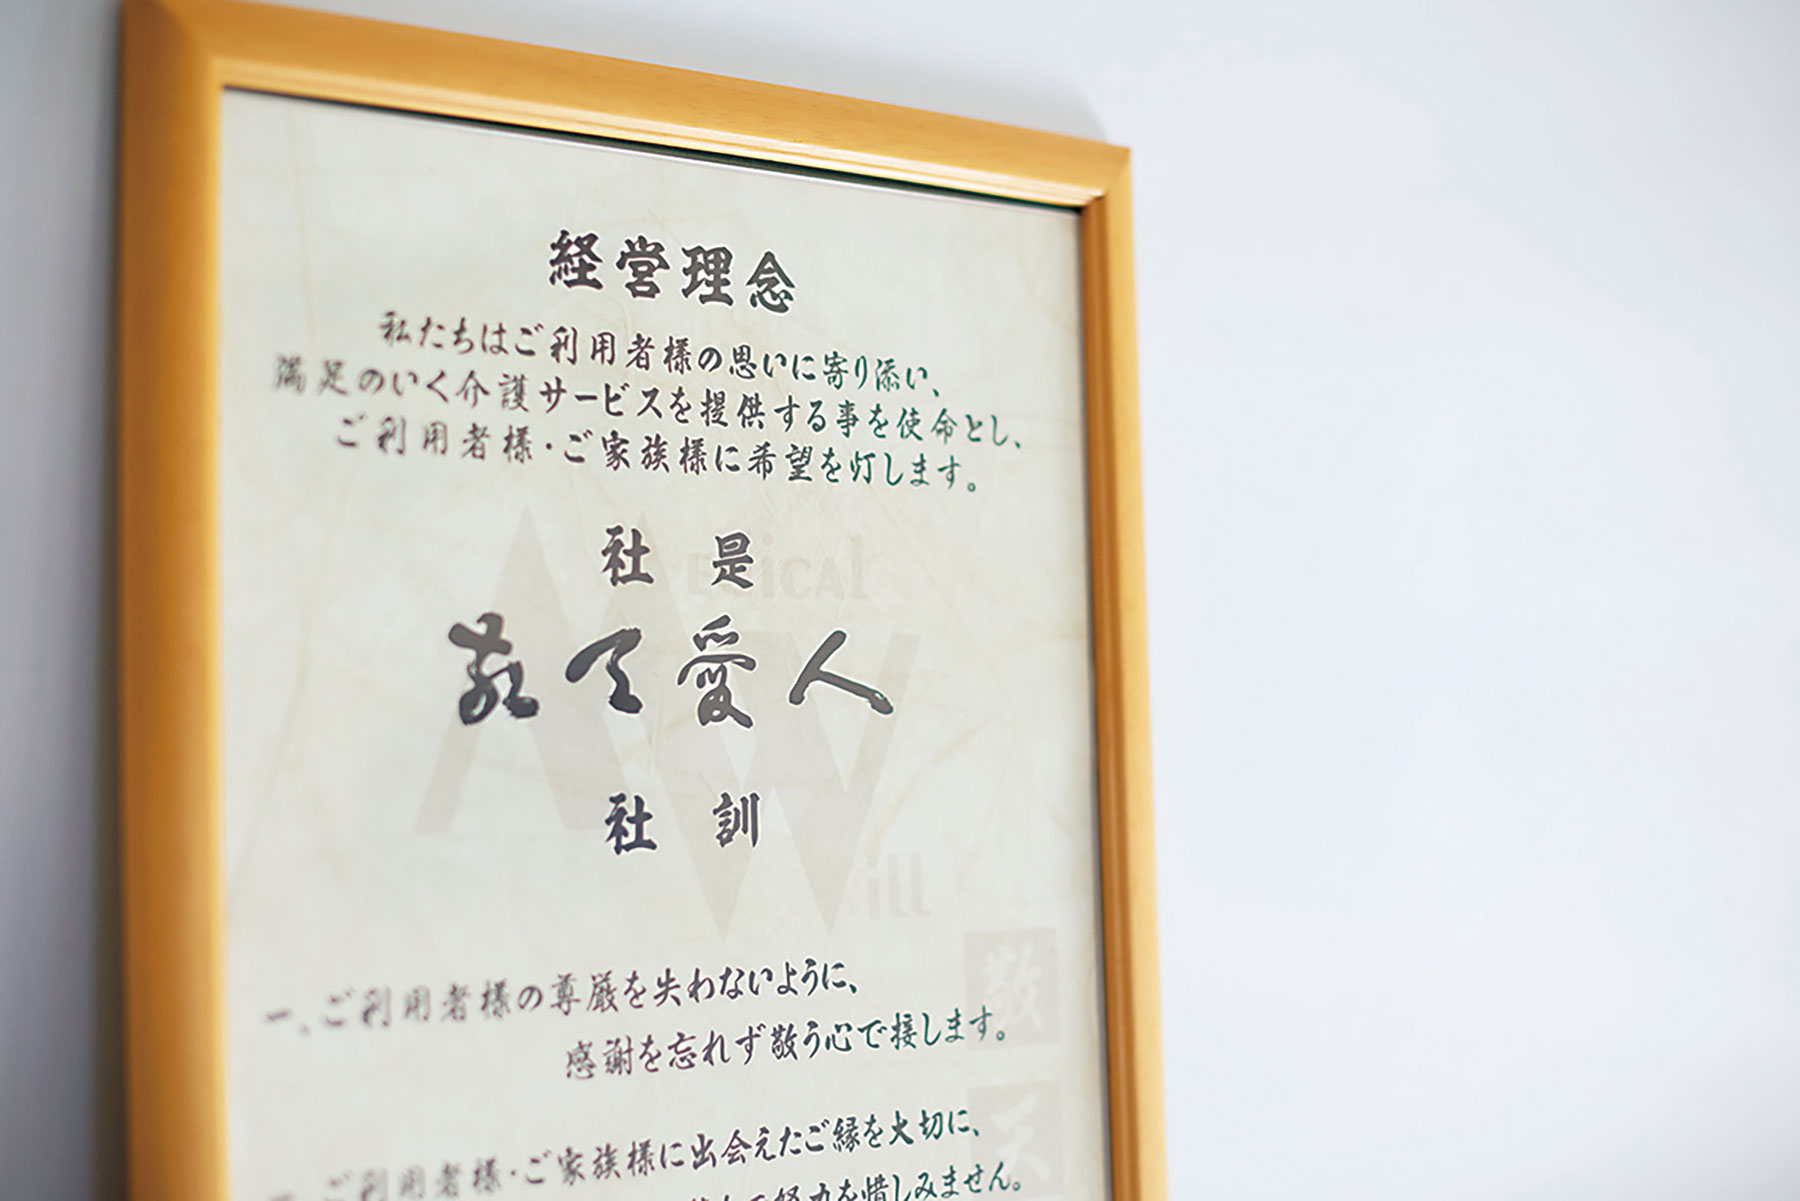 経営理念
私たちはご利用者様の思いに寄り添い、
満足のいく介護サービスを提供する事を使命とし、
ご利用者様・ご家族様に希望を灯します。
社是
敬天愛人
社訓
Medical
Will
一、ご利用者様の尊厳を失わないように、
感謝を忘れず敬う心で接します。
敬
ご利用者様・ご家族様に出会えたご縁を大切に、
天
努力を惜しみません。